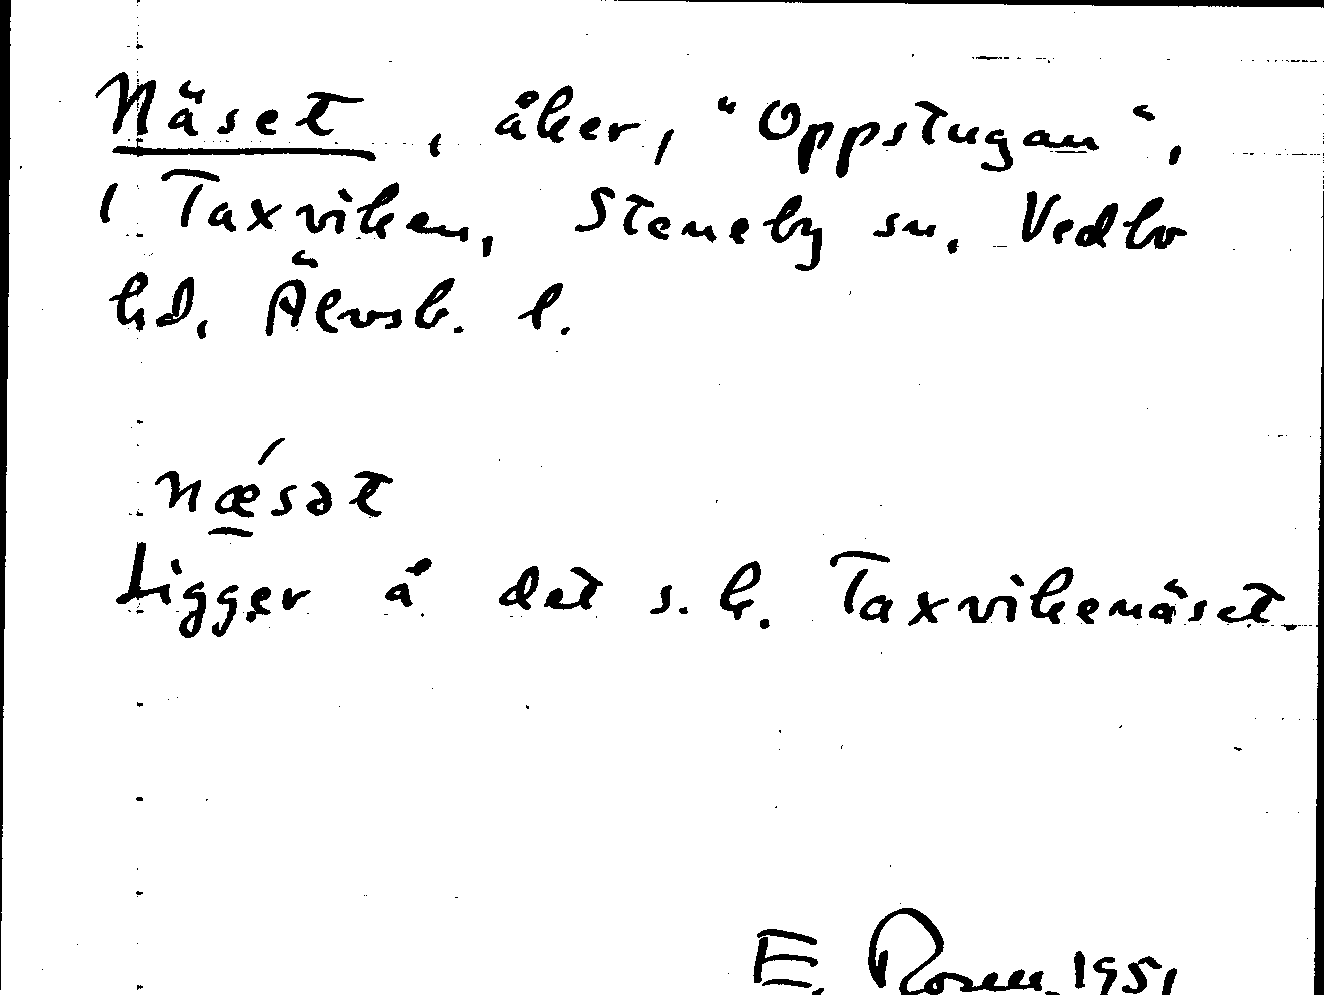 Näset, åker, "Oppstugan",
i Taxviken, Steneby sn, Vedbo
hd, Älvsb. l.
nǽsət
Ligger å det s.k. Taxvikenäset.
E. Rosen. 1951